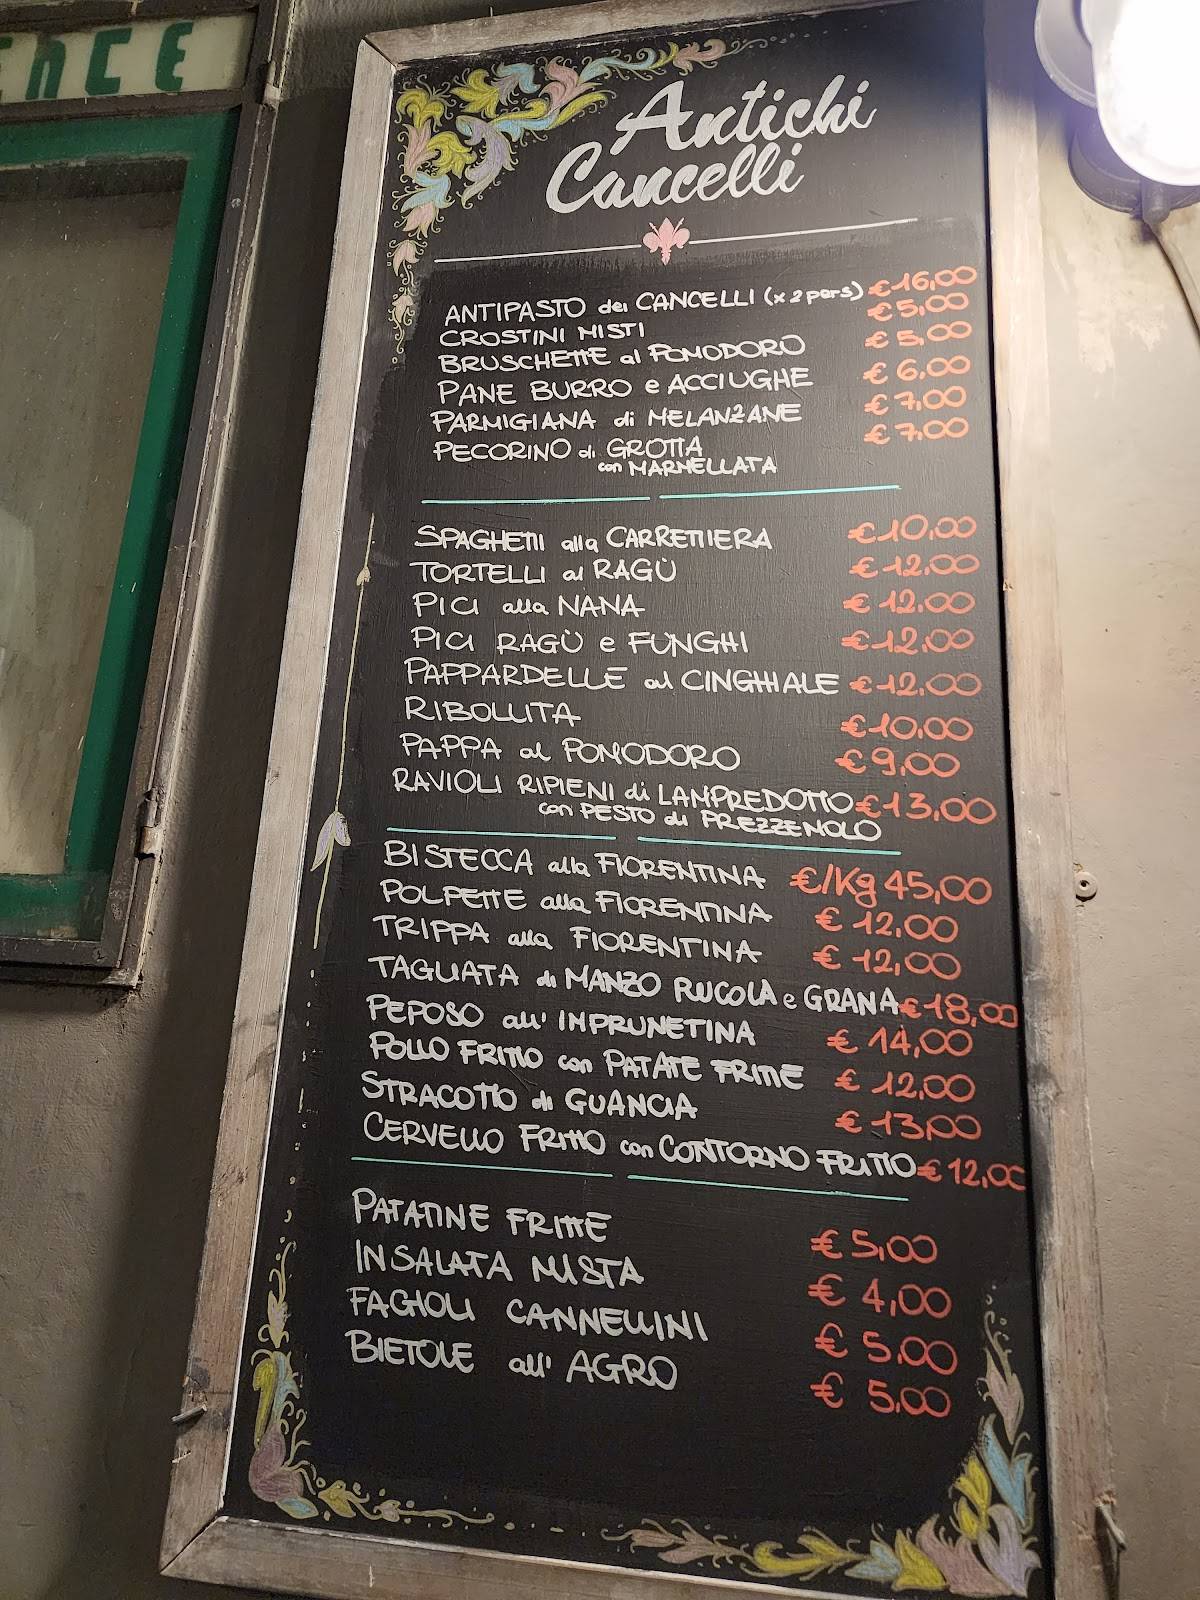 ENCE
Antichi
Cancelli
ANTIPASTO dei CANCELLI (x 2 pers) €16,00
CROSTINI MISTI €5,00
BRUSCHETTE al POMODORO €5,00
PANE BURRO e ACCIUGHE €6,00
PARMIGIANA di MELANZANE €7,00
PECORINO di GROTTA €7,00
con MARMELLATA
SPAGHETTI alla CARRETTIERA €10,00
TORTELLI al RAGÙ €12,00
PICI alla NANA €12,00
PICI RAGÙ e FUNGHI €12,00
PAPPARDELLE al CINGHIALE €12,00
RIBOLLITA €10,00
PAPPA al POMODORO €9,00
RAVIOLI RIPIENI di LAMPREDOTTO €13,00
con PESTO di PREZZEMOLO
BISTECCA alla FIORENTINA €/Kg 45,00
POLPETTE alla FIORENTINA €12,00
TRIPPA alla FIORENTINA €12,00
TAGLIATA di MANZO RUCOLA e GRANA €18,00
PEPOSO all' IMPRUNETINA €14,00
POLLO FRITTO con PATATE FRITTE €12,00
STRACOTTO di GUANCIA €13,00
CERVELLO FRITTO con CONTORNO FRITTO €12,00
PATATINE FRITTE €5,00
INSALATA MISTA €4,00
FAGIOLI CANNELLINI €5,00
BIETOLE all' AGRO €5,00